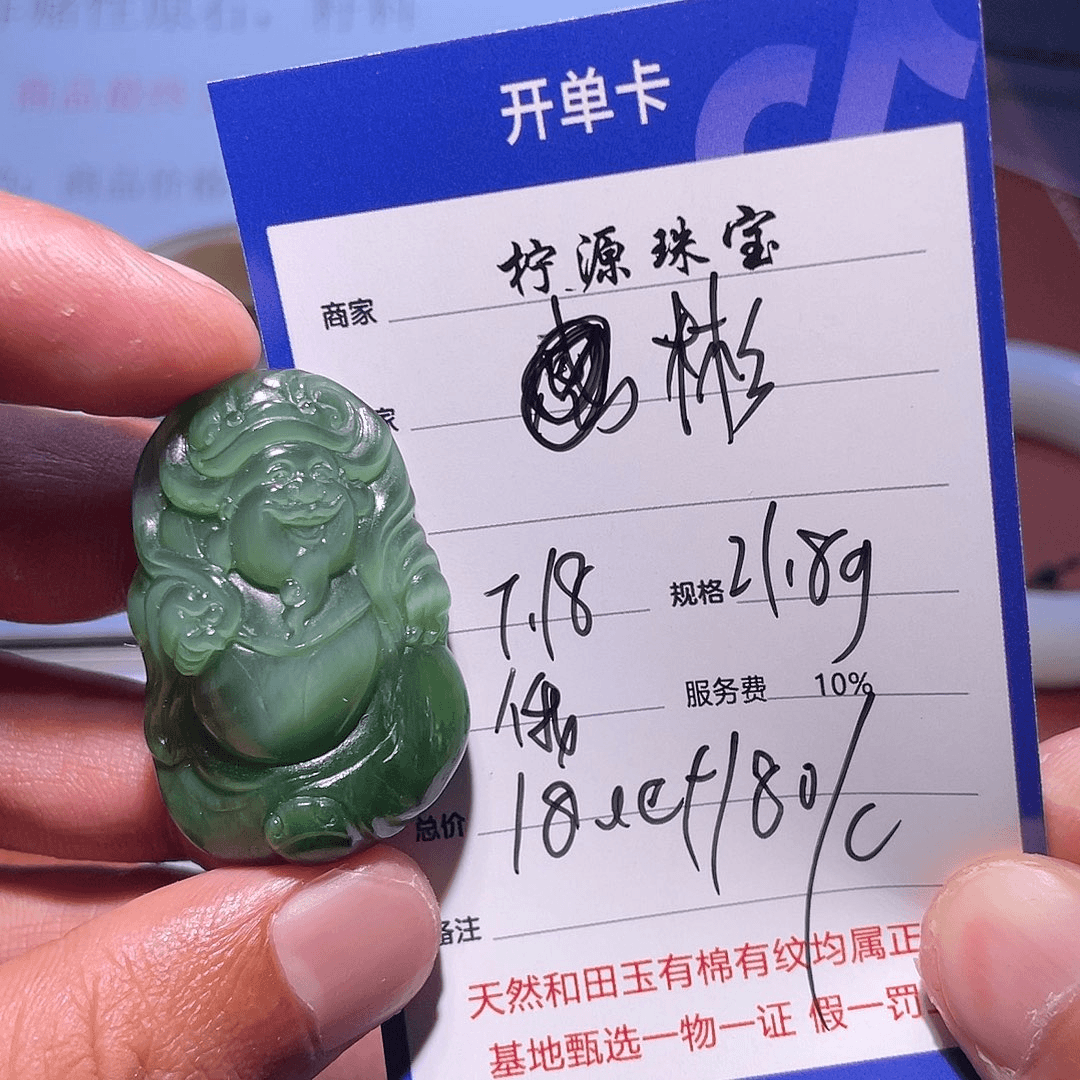 开单卡
商家 柠源珠宝
家 彬
7.18 规格 21.8g
俄 服务费 10%
总价
备注
天然和田玉有棉有纹均属正
基地甄选一物一证 假一罚